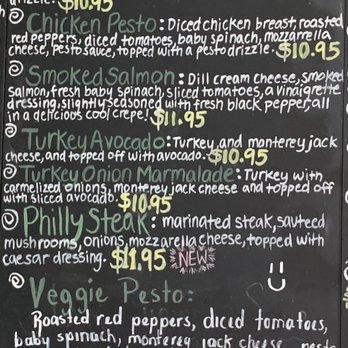 drizzle. $10.95
Chicken Pesto: Diced chicken breast, roasted
red peppers, diced tomatoes, baby spinach, mozzarella
cheese, Pesto sauce, topped with a pesto drizzle. $10.95
Smoked Salmon: Dill cream cheese, smoked
salmon, fresh baby spinach, sliced tomatoes, a vinaigrette
dressing, slightly seasoned with fresh black pepper, all
in a delicious cool crepe! $11.95
Turkey Avocado: Turkey and monterey jack
cheese, and topped off with avocado. $10.95
Turkey Onion Marmalade: Turkey with
carmelized onions, monterey jack cheese and topped off
with sliced avocado. $10.95
Philly Steak: marinated steak, sauteed
mushrooms, onions, mozzarella cheese, topped with
caesar dressing. $11.95 NEW
Veggie Pesto:
Roasted red peppers, diced tomatoes,
baby spinach, monterey jack cheese, pesto